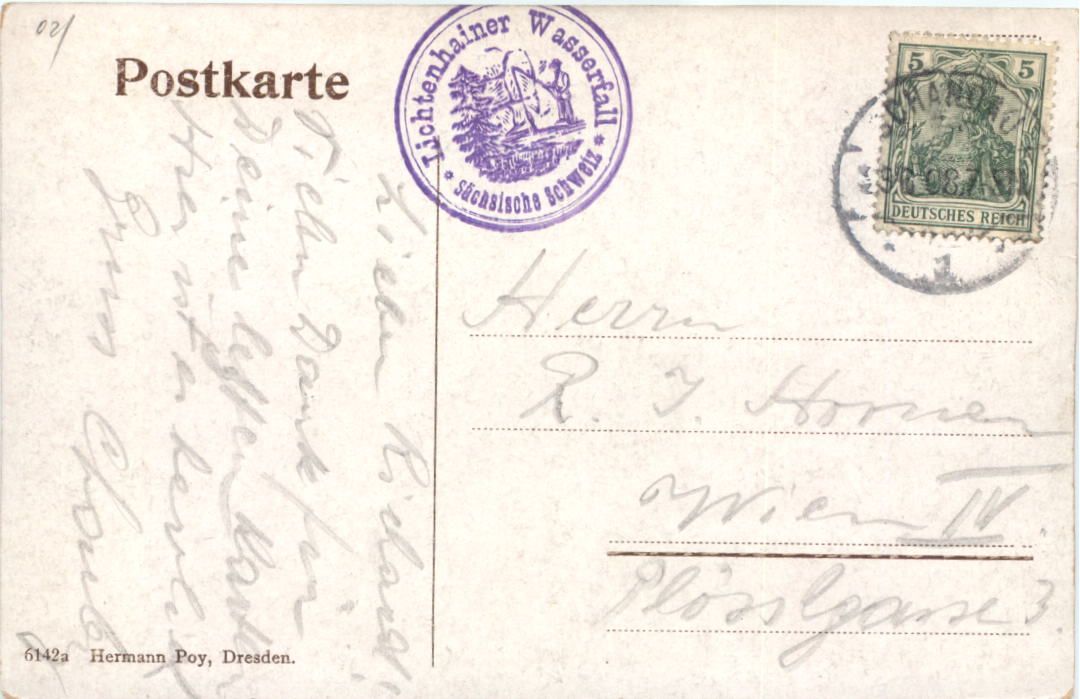 02/
Postkarte
Lichtenhainer Wasserfall
* Sächsische Schweiz *
5 5
DEUTSCHES REICH
SCHANDAU
1
Lieber Richard!
Vielen Dank für
Deine letzten Karten
Hier ist es herrlich
Gruss
Herrn
R. J.
Wien IV
Plösslgasse 3.
6142a Hermann Poy, Dresden.